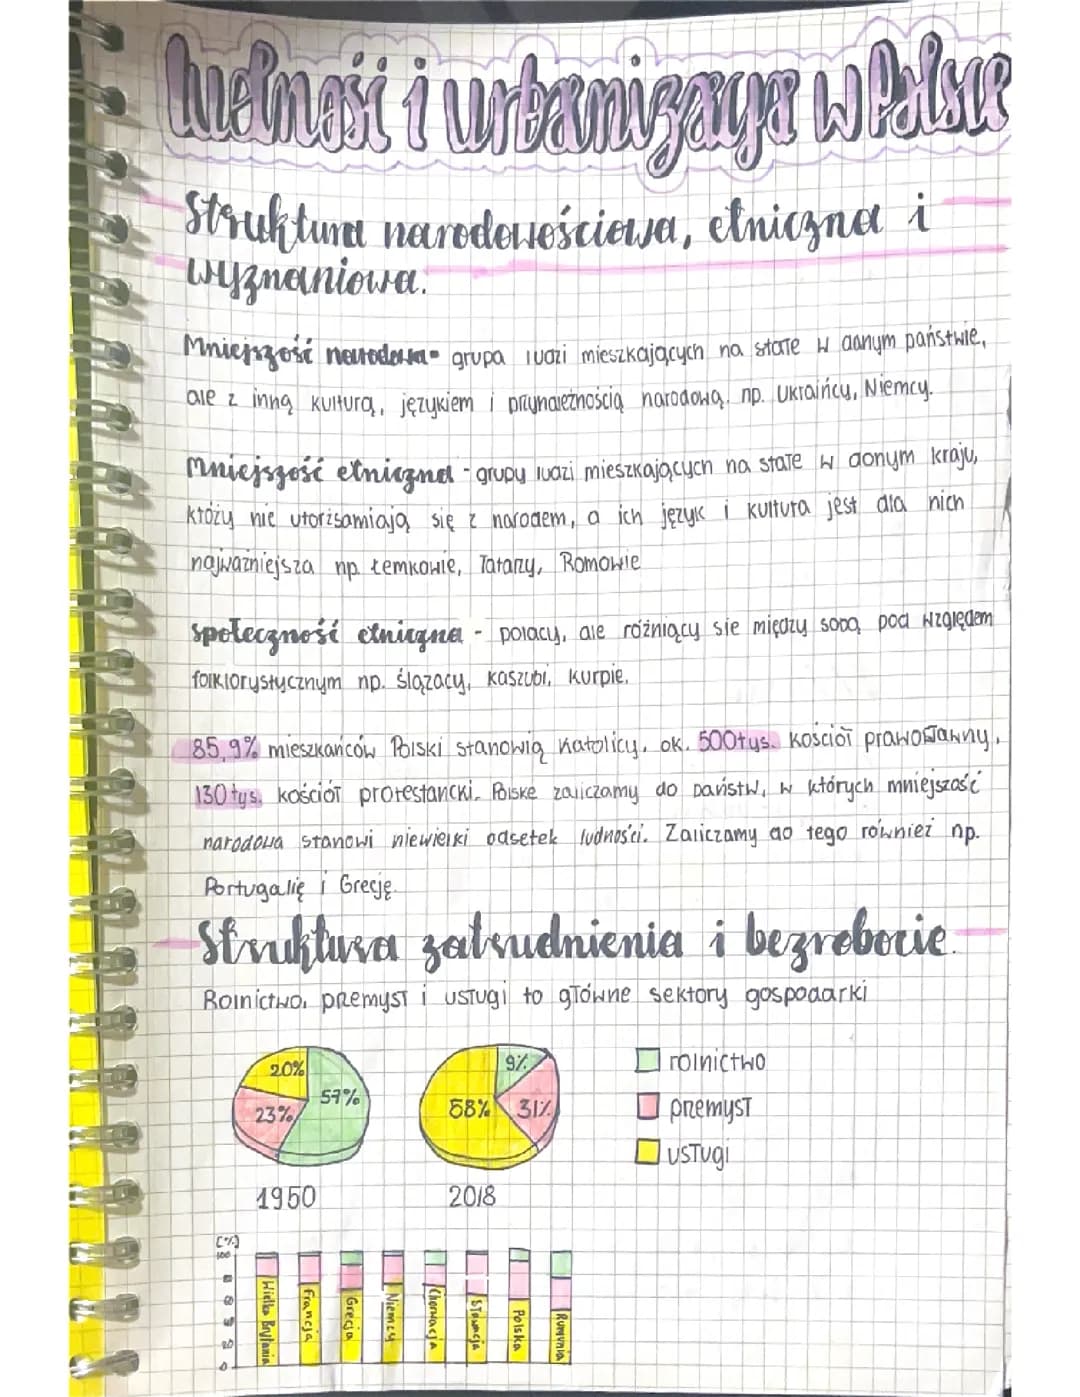 ludność i urbanizacja w Polsce
Struktura narodowościowa, etniczna i
wyznaniowa.
Mniejszość narodowa - grupa ludzi mieszkających na stałe w danym państwie,
ale z inną kulturą, językiem i przynależnością narodową. np. Ukraińcy, Niemcy.
Mniejszość etniczna - grupy ludzi mieszkających na stałe w danym kraju,
którzy nie utożsamiają się z narodem, a ich język i kultura jest dla nich
najważniejsza np. Łemkowie, Tatarzy, Romowie
społeczność etniczna - polacy, ale różniący sie między sobą pod względem
folklorystycznym np. ślązacy, kaszubi, kurpie.
85,9% mieszkańców Polski stanowią katolicy. ok. 500tys. kościół prawosławny,
130tys. kościół protestancki. Polske zaliczamy do państw, w których mniejszość
narodowa stanowi niewielki odsetek ludności. Zaliczamy do tego również np.
Portugalię i Grecję.
Struktura zatrudnienia i bezrobocie.
Rolnictwo, przemysł i usługi to główne sektory gospodarki
20% 57% 23%
9% 58% 31%
rolnictwo
przemysł
usługi
1950 2018
[%]
100
80
60
40
20
0
Wielka Brytania
Francja
Grecja
Niemcy
Chorwacja
Słowacja
Polska
Rumunia